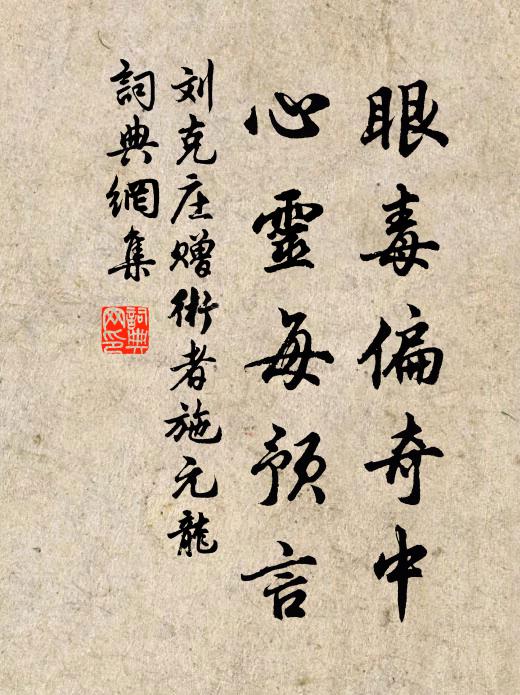 眼毒偏奇中
心靈每預言
刘克庄赠術者施元龍
詞典網集
詞典網印